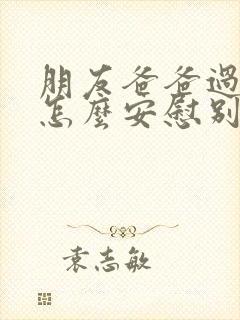 朋友爸爸過
怎麼安慰别
袁志敏